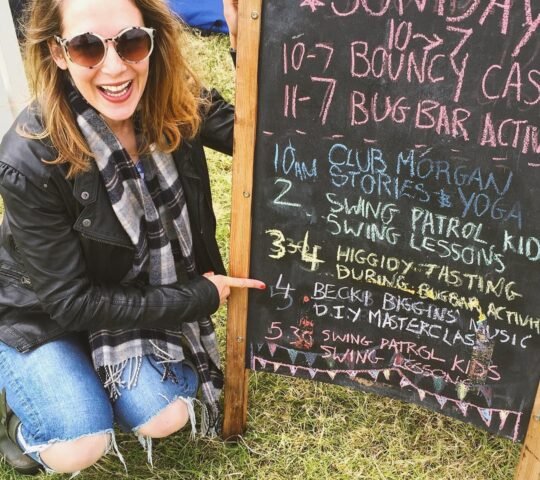 SUNDAY
10-7
10-7 BOUNCY CAS
11-7 BUG BAR ACTIV
10AM CLUB MORGAN
STORIES & YOGA
2. SWING PATROL KID
SWING LESSONS
3-4 HIGGIDY TASTING
DURING BUGBAR ACTIVIT
4. BECKIE BIGGINS' MUSIC
D.I.Y MASTERCLASS
5.30 SWING PATROL KIDS
SWING LESSONS